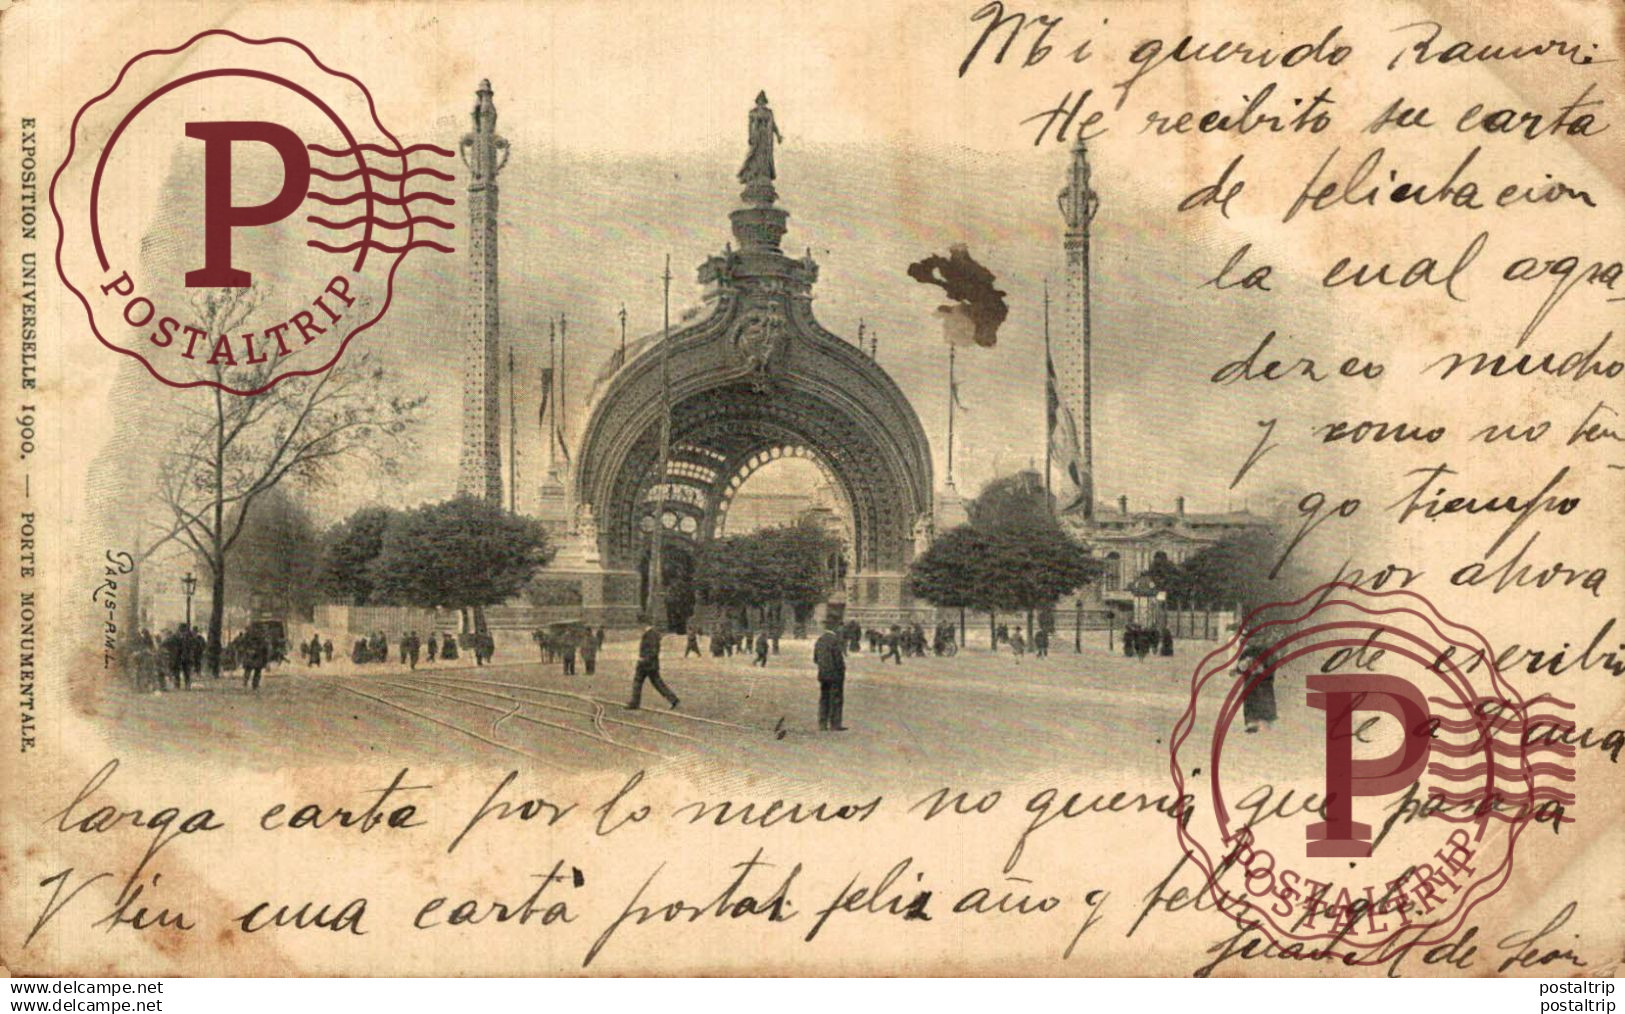 Mi querido Ramon:
He recibito su carta
de felicitacion
la cual agra-
dezco mucho
y como no ten
go tiempo
por ahora
de escribir
le a V una
larga carta por lo menos no queria que pasara
V sin una carta postal feliz año y feliz siglo.
Juan M de Leon
EXPOSITION UNIVERSELLE 1900. — PORTE MONUMENTALE.
PARIS-A.M.L.
P
POSTALTRIP
P
POSTALTRIP
POSTALTRIP
www.delcampe.net
www.delcampe.net
postaltrip
postaltrip